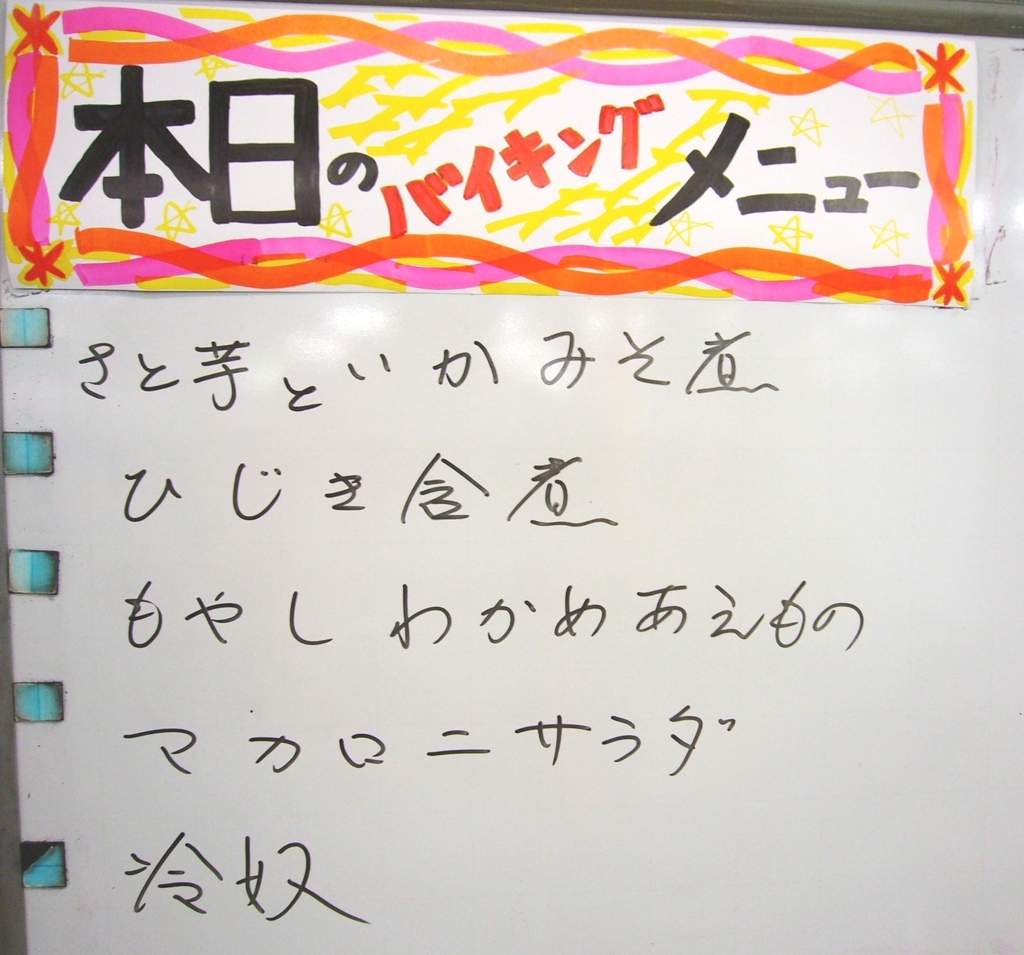 本日のバイキングメニュー
さと芋といかみそ煮
ひじき含煮
もやしわかめあえもの
マカロニサラダ
冷奴